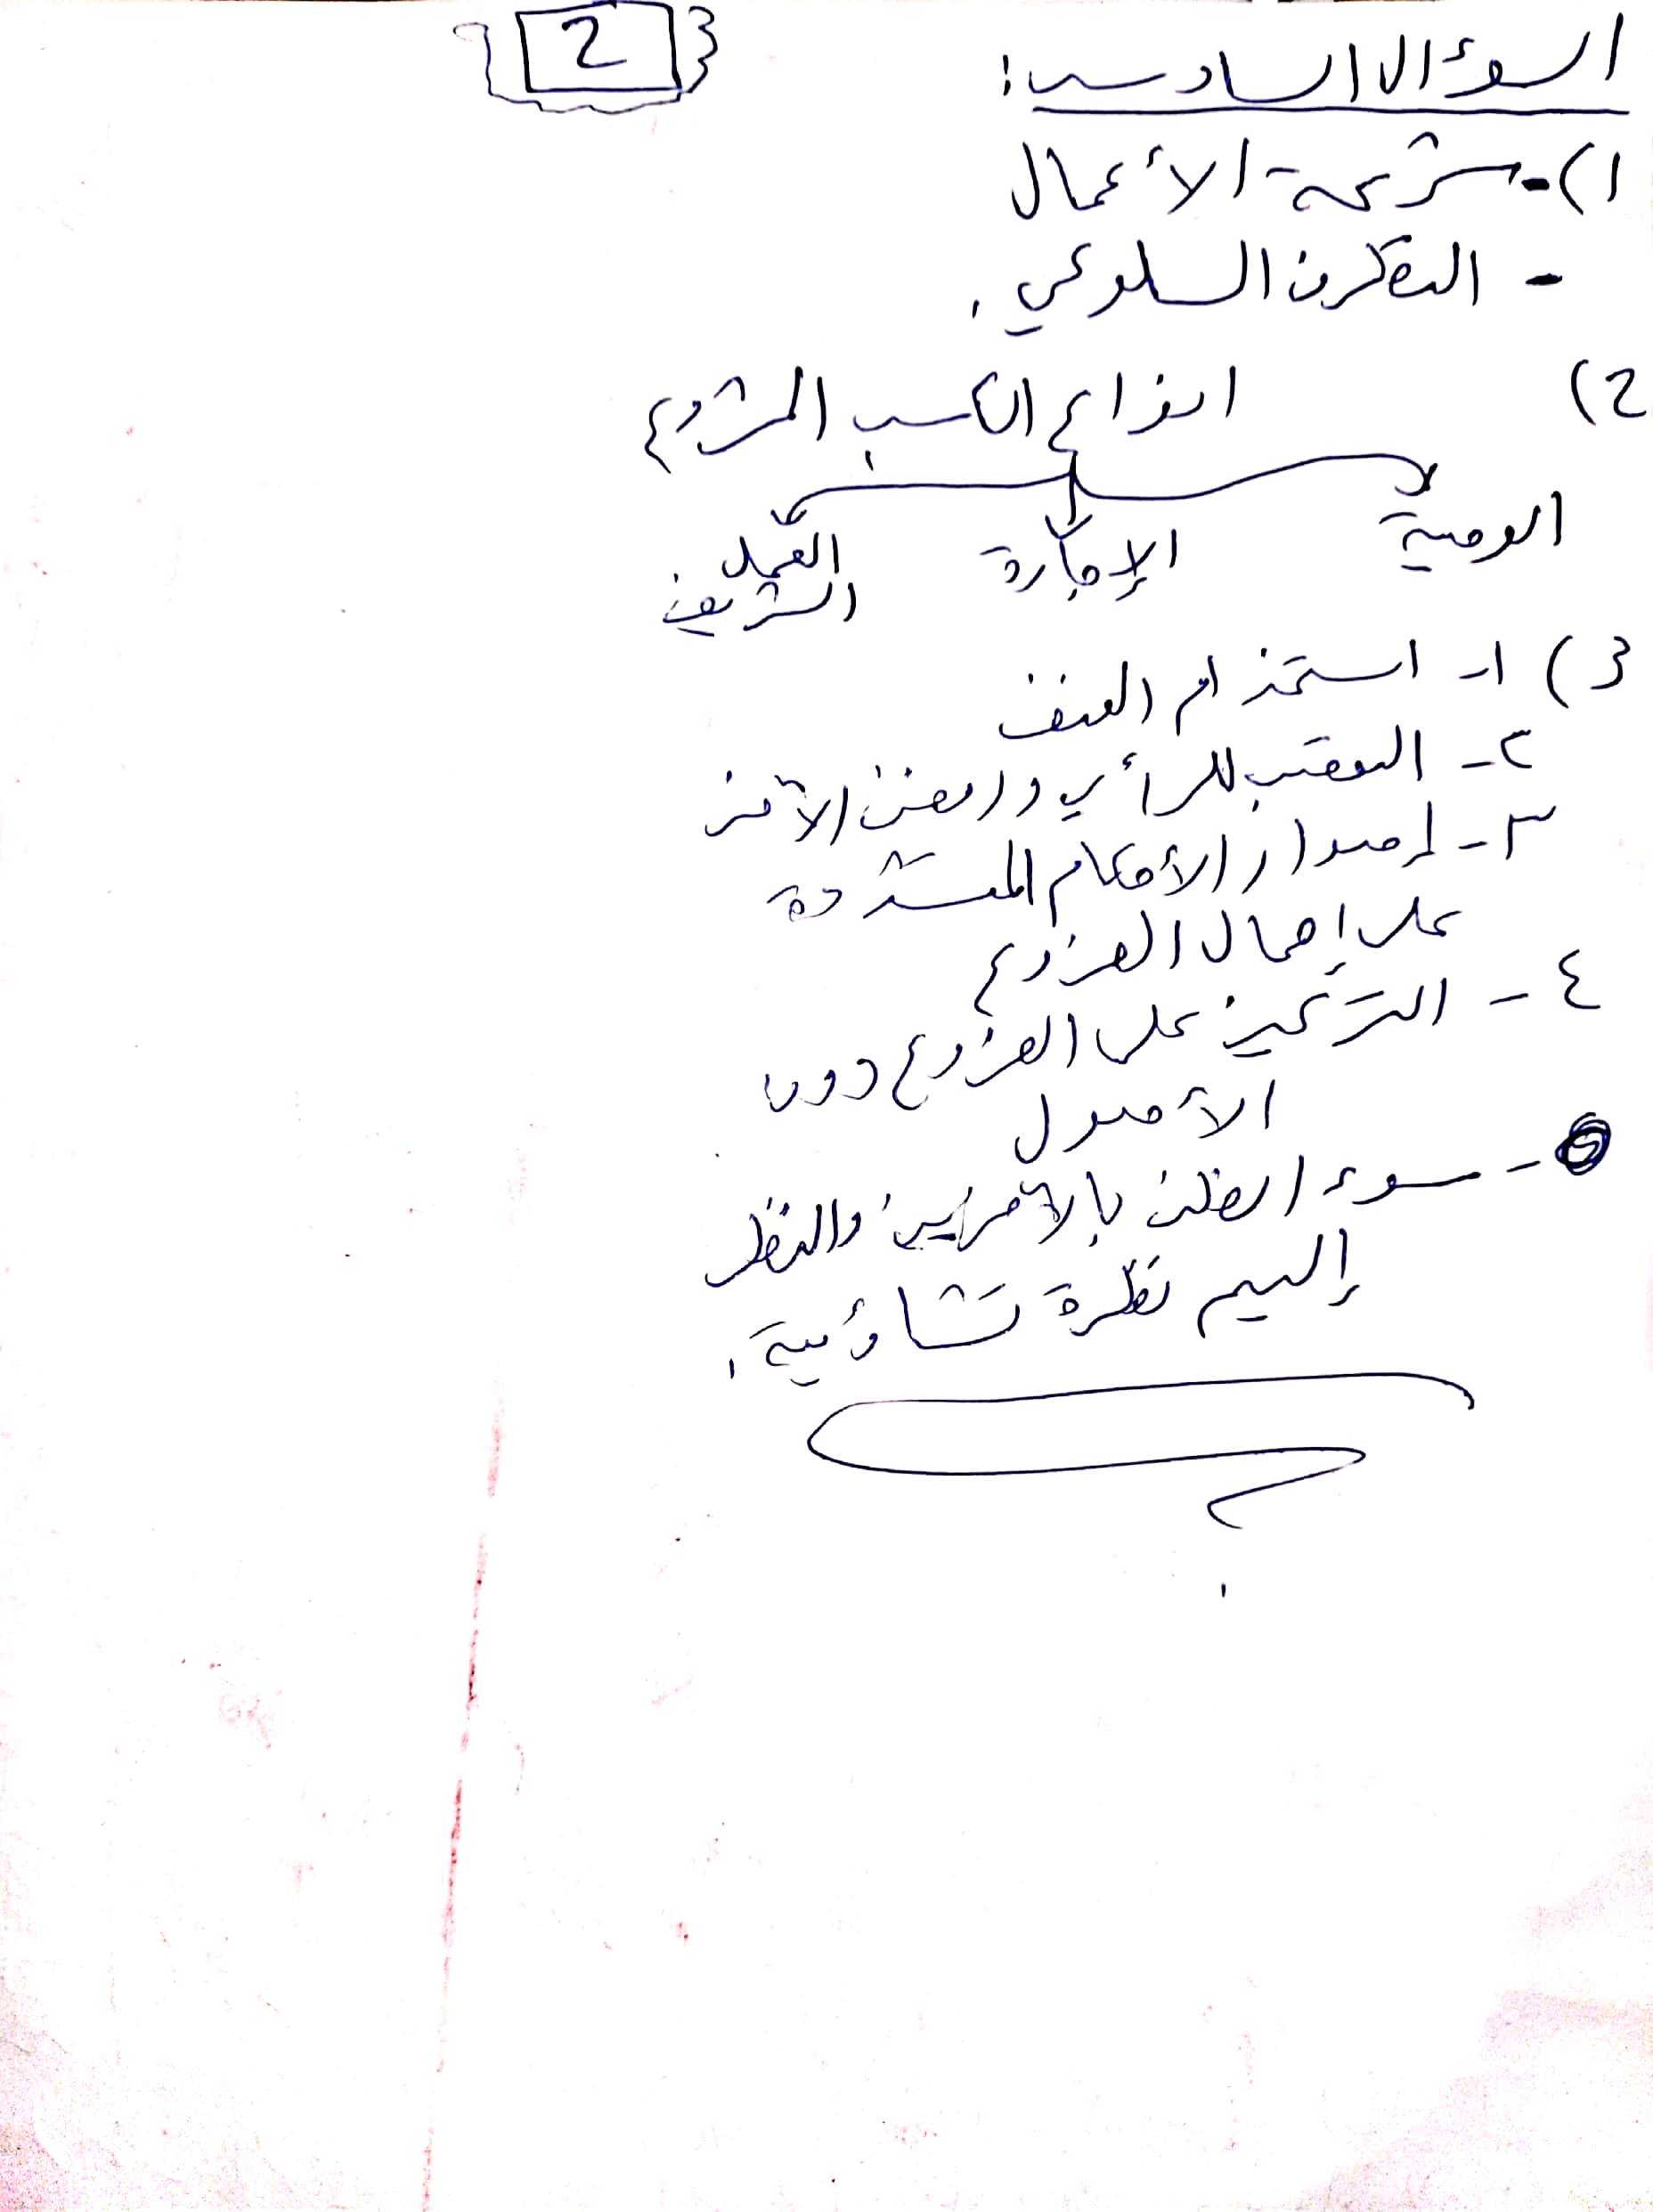 2
السؤال السادس:
1) - شركة الأعمال
- التطرف السلوكي.
2) انواع الكسب المشروع
الوصية الإجارة العمل
الشريف
3) ١- استخدام العنف
٢- التعصب للرأي ورفض الآخر
٣- إصدار الأحكام المتشددة
على إهمال الفروع
٤- التركيز على الفروع دون
الأصول
٥- سوء الظن بالآخرين والنظر
إليهم نظرة تشاؤمية.